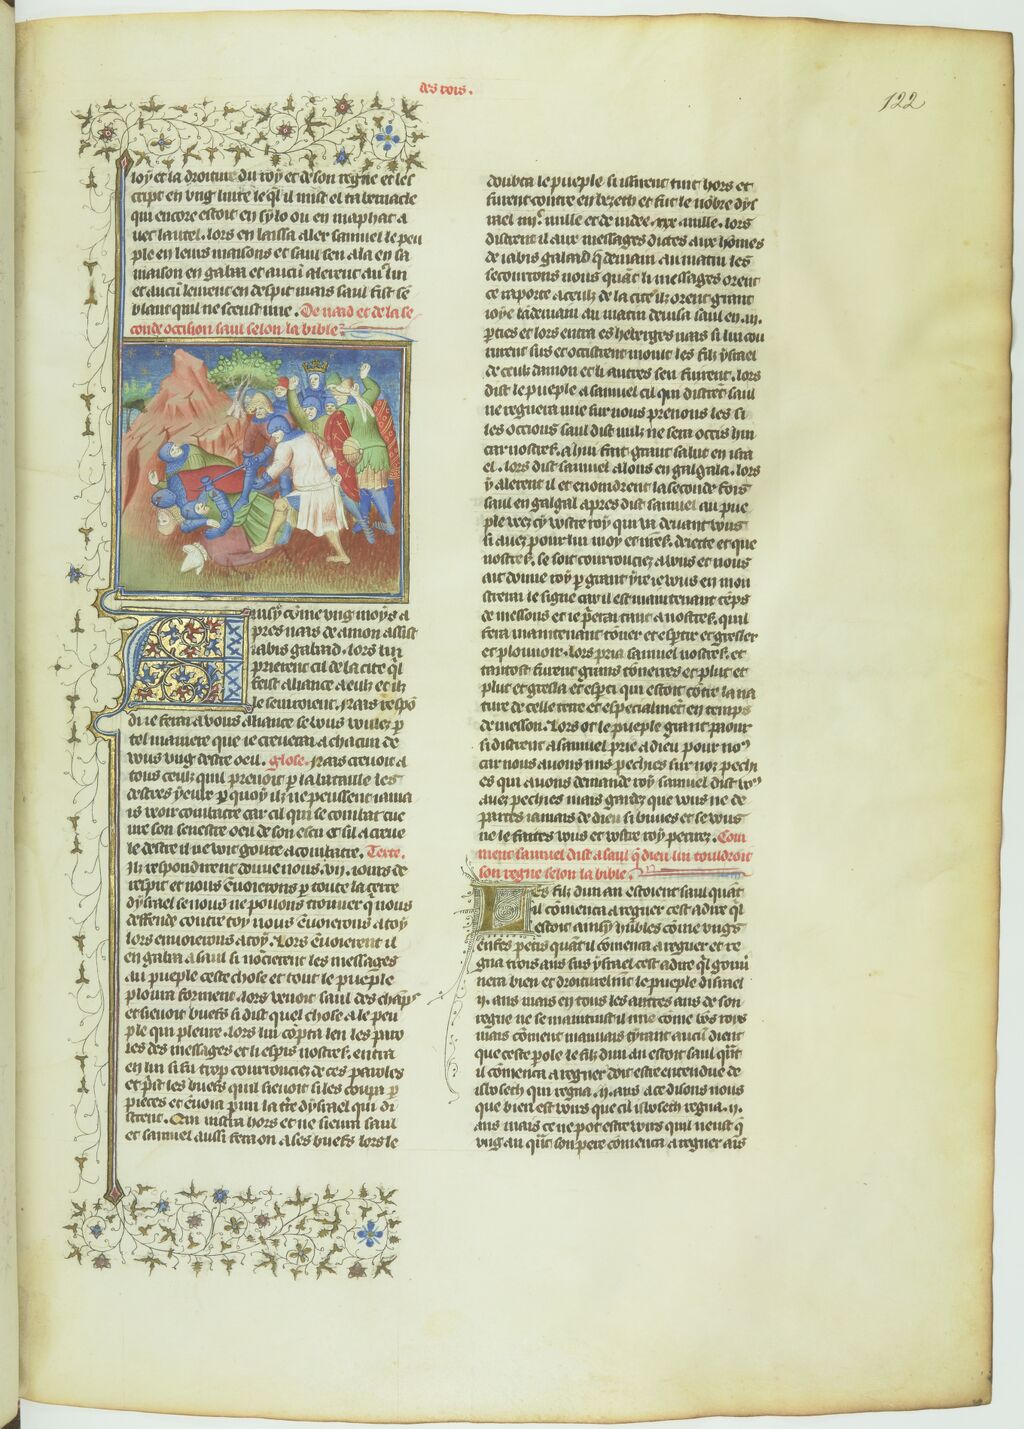 des rois.
122
loy et la droiture du roy et de son regne et les
cript en ung livre le ql il mist el tabernacle
qui encore estoit en sylo ou en maphat a
vec lautel. lors en laissa aler samuel le peu
ple en leurs maisons et saul sen ala en sa
maison en gabaa et aucū alerent avec lui
et aucū leurent en despit mais saul fist sē
blant quil ne sceust mie. De naas et de la se
conde occision saul selon la bible
Ainsy cōme ung moys a
pres naas de amon assist
iabis galaad. lors lui
prierent cil de la cite ql
feist aliance a eulx et ilz
le serviroient. Naas respō
di ie feray a vous aliance se vous voulez p
tel maniere que ie creveray a chacun de
vous ung destre oeil. glose. Naas crevoit a
tous ceulx quil prenoit p la bataille les
destres yeulx p quoy ilz ne peussent iama
is veoir combatre car cil qui se combat cue
vre son senestre oeil de son escu et sil a creve
le destre il ne voit goute a combatre. Texte.
Ilz respondirent donne nous .vii. iours de
respit et nous ēvoierons p toute la terre
dysrael se nous ne povons trouver q nous
deffende contre toy nous ēvoierons a toy
lors envoierons a toy. Lors ēvoierent il
en gabaa a saul si nōcierent les messages
au pueple ceste chose et tout le pueple
ploura forment. lors venoit saul des chāps
et sievoit buefs si dist quel chose a le peu
ple qui pleure. lors lui cōpta len les paro
les des messages et li espis nostres. entra
en lui si fu trop courroucie de ces paroles
et prist les buefs quil sievoit si les coupa p
pieces et ēvoia p mi la tre dysrael qui di
strent. Qui nistra hors et ne sieura saul
et samuel aussi fera on a ses buefs lors le
doubta le pueple si issirent tuit hors et
furent contre en bezech et fut le nōbre dys
rael iiiᶜ. mille et de iudee .xxx. mille. lors
distrent il aux messages dictes aux hōmes
de iabis galaad q demain au matin les
secourrons nous quāt li messages orent
ce raporte a ceulz de la cite ilz orent grant
ioye lādemain au matin devisa saul en .iii.
pties et lors entra es heberges naas si lui cou
rurent sus et occistrent moult les filz ysrael
de ceulx damon et li autres sen fuirent. lors
dist le pueple a samuel cil qui distrēt saul
ne regnera mie sur nous prenons les si
les occions saul dist nulz ne sera occis hui
car nostres. a hui fait grant salut en isra
el. lors dist samuel alons en galgala. lors
y alerent il et enoindrent la seconde fois
saul en galgal apres dist samuel au pue
ple veez cy vostre roy qui va devant vous
si avez pour lui moy et nres. deiette et que
nostres. se soit courrouciez a vous et nous
ait donne roy p grant yre ie vous en mou
streray le signe car il est maintenant tēps
de messons et ie preray tant a nostres. quil
fera maintenant toner et esptir et gresler
et plouvoir. lors pria samuel nostres. et
tantost furent grans tōnerres et plut et
plut et gresla et esptᵢ qui estoit cōtre la na
ture de celle terre et especialmēt en temps
de messon. Lors ot le pueple grant paour
si distrent a samuel prie a dieu pour noᵘˢ
car nous avons mis pechies sur noz pechi
es qui avons demande roy samuel dist voᵘˢ
avez pechies mais gardez que vous ne de
partes iamais de dieu si vivres et se vous
ne le faittes vous et vostre roy perirez. Com
ment samuel dist a saul q dieu lui touldroit
son regne selon la bible.
Les filz dun an estoient saul quāt
il cōmenca a regner cest a dire ql
estoit ainsy hūbles cōme ungs
enfes petis quāt il cōmenca a regner et re
gna trois ans sus ysrael cest a dire ql gouv
nera bien et droiturelmt le pueple disrael
ii. ans mais en tous les autres ans de son
regne ne se maintint il mie cōme bōs roys
mais cōment mauvais tyrant aucū dient
que ceste pole le filz dun an estoit saul qūt
il cōmenca a regner doit estre entendue de
isboseth qui regna .ii. ans a ce disons nous
que bien est voirs que cil isboseth regna .ii.
ans mais ce ne pot estre voirs quil neust q
ung an qūt son pere cōmenca a regner ais